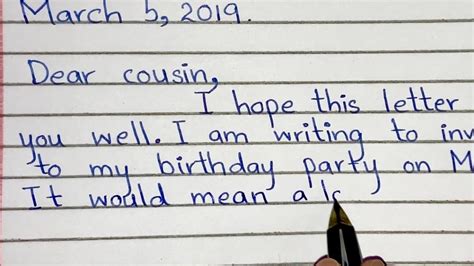 March 5, 2019.
Dear cousin,
I hope this letter
you well. I am writing to inv
to my birthday party on M
It would mean a lo